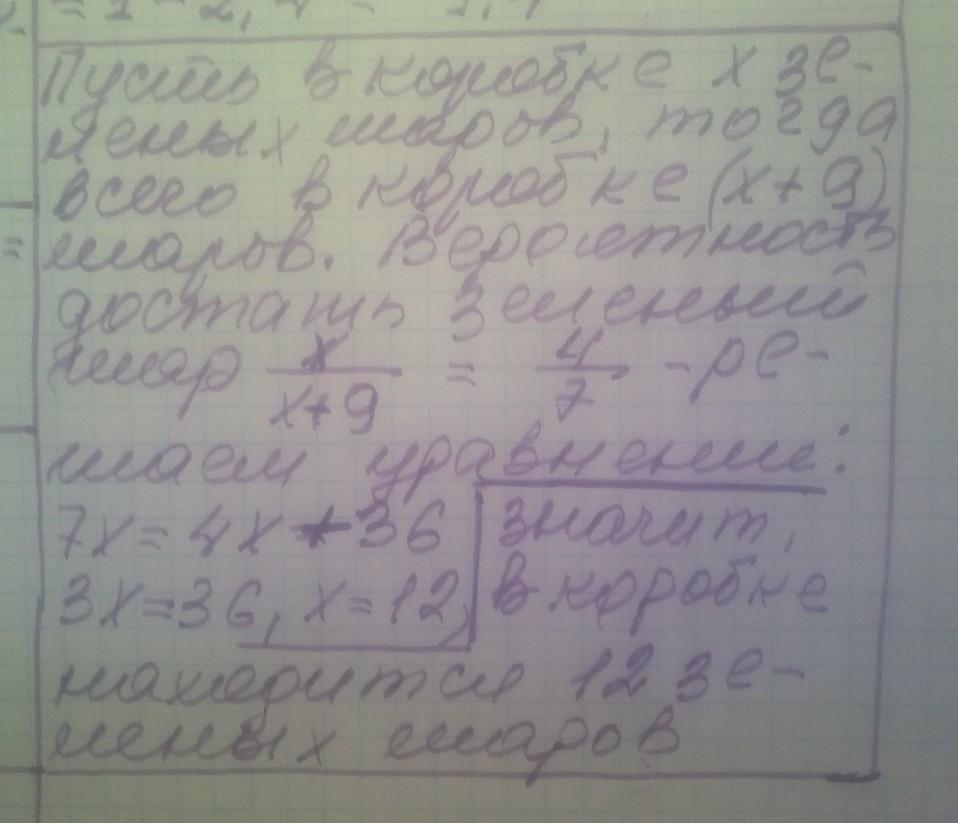 Пусть в коробке x зе-
леных шаров, тогда
всего в коробке (x+9)
шаров. Вероятность
достать зеленый
шар x/(x+9) = 4/7 - ре-
шаем уравнение:
7x = 4x + 36
3x = 36, x = 12,
значит,
в коробке
находится 12 зе-
леных шаров